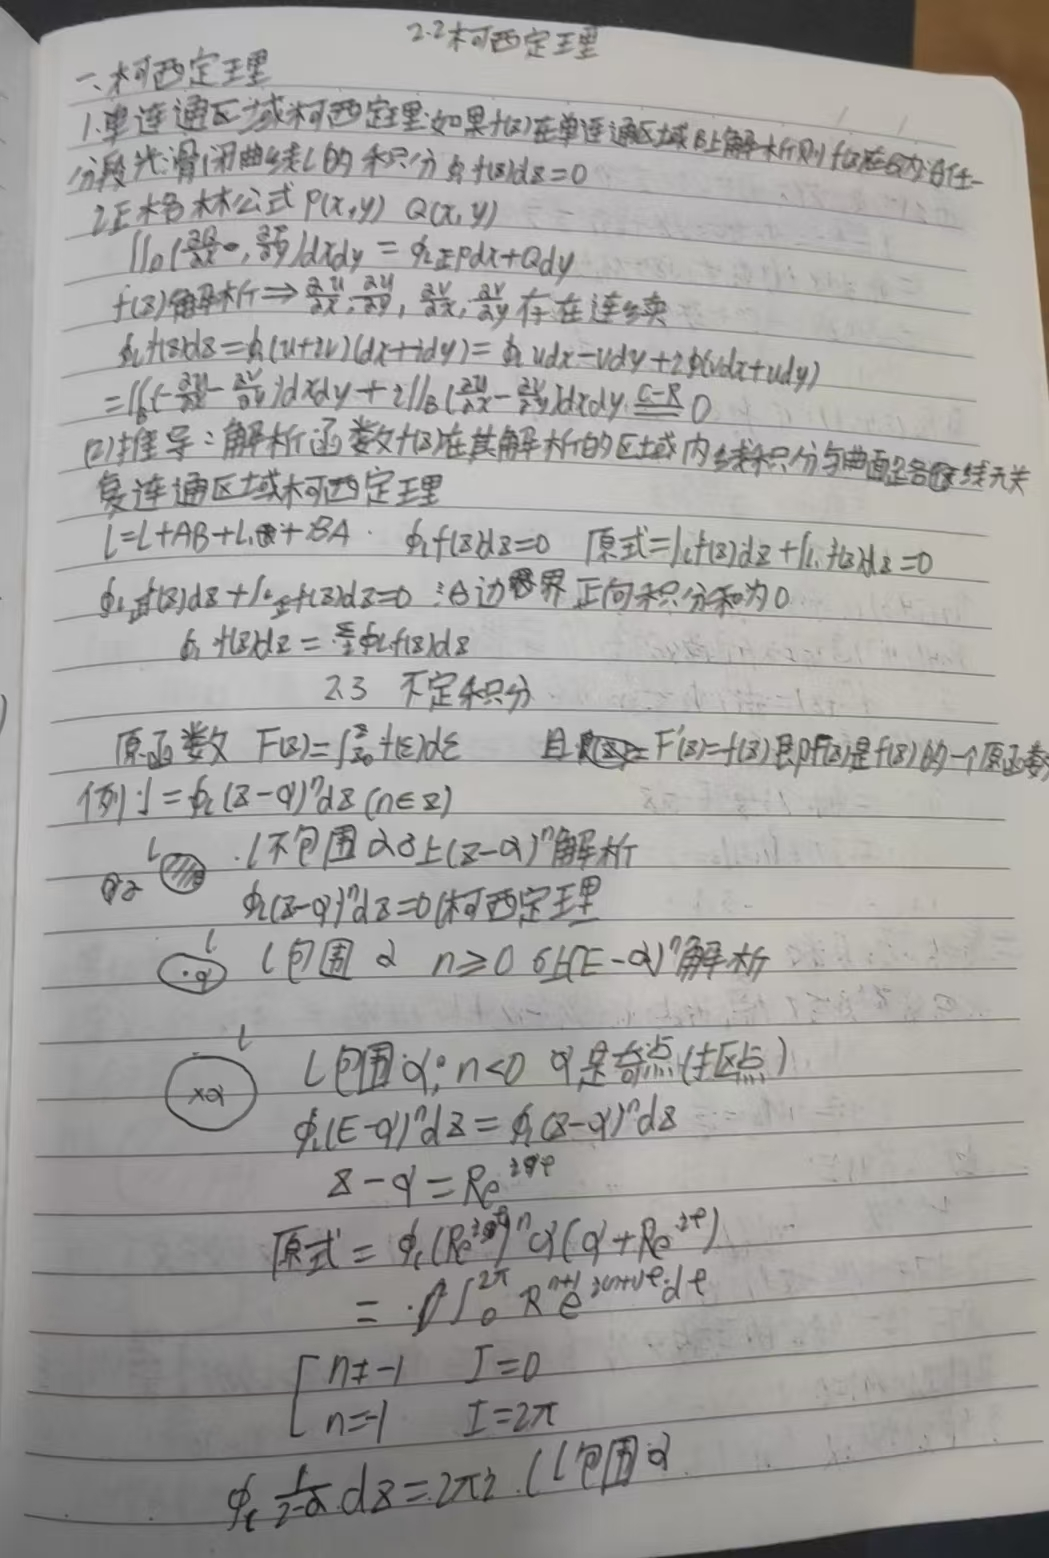 2.2柯西定理
一、柯西定理
1.单连通区域柯西定理:如果f(z)在单连通区域B上解析则f(z)在B内沿任一
分段光滑闭曲线l的积分∮l f(z)dz=0
证格林公式 P(x,y) Q(x,y)
∬D(∂Q/∂x , ∂P/∂y)dxdy = ∮l正Pdx+Qdy
f(z)解析⇒∂u/∂x, ∂u/∂y, ∂v/∂x, ∂v/∂y 存在连续
∮l f(z)dz=∮l(u+iv)(dx+idy)=∮l udx-vdy+i∮(vdx+udy)
=∬B(-∂u/∂x-∂v/∂y)dxdy+i∬B(∂u/∂x-∂v/∂y)dxdy C-R 0
(2)推导:解析函数f(z)在其解析的区域内线积分与曲面路径线无关
复连通区域柯西定理
l=l+AB+l₁+BA. ∮l f(z)dz=0 原式=∫l f(z)dz+∫l₁ f(z)dz=0
∮l正f(z)dz+∫l正f(z)dz=0 沿边界正向积分和为0
∮l f(z)dz=Σ∮l f(z)dz
2.3 不定积分
原函数 F(z)=∫z₀^z f(ε)dε 且 F'(z)=f(z)即F(z)是f(z)的一个原函数
例:I=∮l(z-α)ⁿdz(n∈z)
l .l不包围α B上(z-α)ⁿ解析
α ∮l(z-α)ⁿdz=0(柯西定理
l
.α l包围α n≥0 B上(E-α)ⁿ解析
l
×α l包围α; n<0 α是奇点(挂区点)
∮l(E-α)ⁿdz=∮l(z-α)ⁿdz
z-α=Re^iφ
原式=∮c(Re^iφ)ⁿd(α+Re^iφ)
=i∫₀^2π R^n+1 e^i(n+1)φdφ
n≠-1 I=0
n=-1 I=2π
∮l 1/z-α dz=2πi.(l包围α